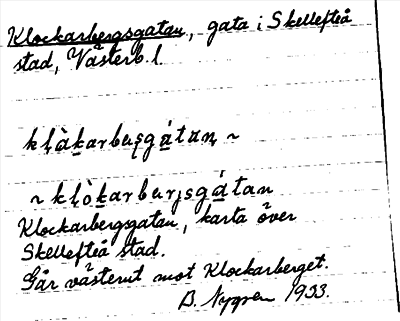 Klockarbergsgatan, gata i Skellefteå
stad, Västerb. l.
kḷàkarbuṣgátaṇ ~
~ kḷòkarburjsgátan
Klockarbergsgatan, karta över
Skellefteå stad.
Går västerut mot Klockarberget.
B. Nygren 1933.